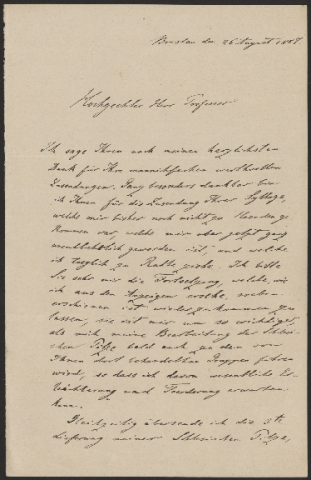 Breslau den 26 August 1887
Hochgeehrter Herr Professor
Ich sage Ihnen noch meinen herzlichsten
Dank für Ihre mannichfachen werthvollen
Zusendungen. Ganz besonders dankbar bin
ich Ihnen für die Zusendung Ihrer Sylloge,
welche mir bisher noch nicht zu Händen ge
kommen war, welche mir aber jetzt ganz
unentbehrlich geworden ist, und welche
ich täglich zu Rathe ziehe. Ich bitte
Sie sehr mir die Fortsetzung, welche, wie
ich aus den Anzeigen ersehe, soeben
erschienen ist wieder zukommen zu
lassen, sie ist mir um so wichtiger,
als mich meine Bearbeitung der Schlesi
schen Pilze bald auch zu den von
Ihnen dort behandelten Gruppen führen
wird, so dass ich davon wesentliche Er
leichterung und Foerderung erwarten
kann.
Gleichzeitig übersende ich die 3te
Lieferung meiner Schlesischen Pilze,